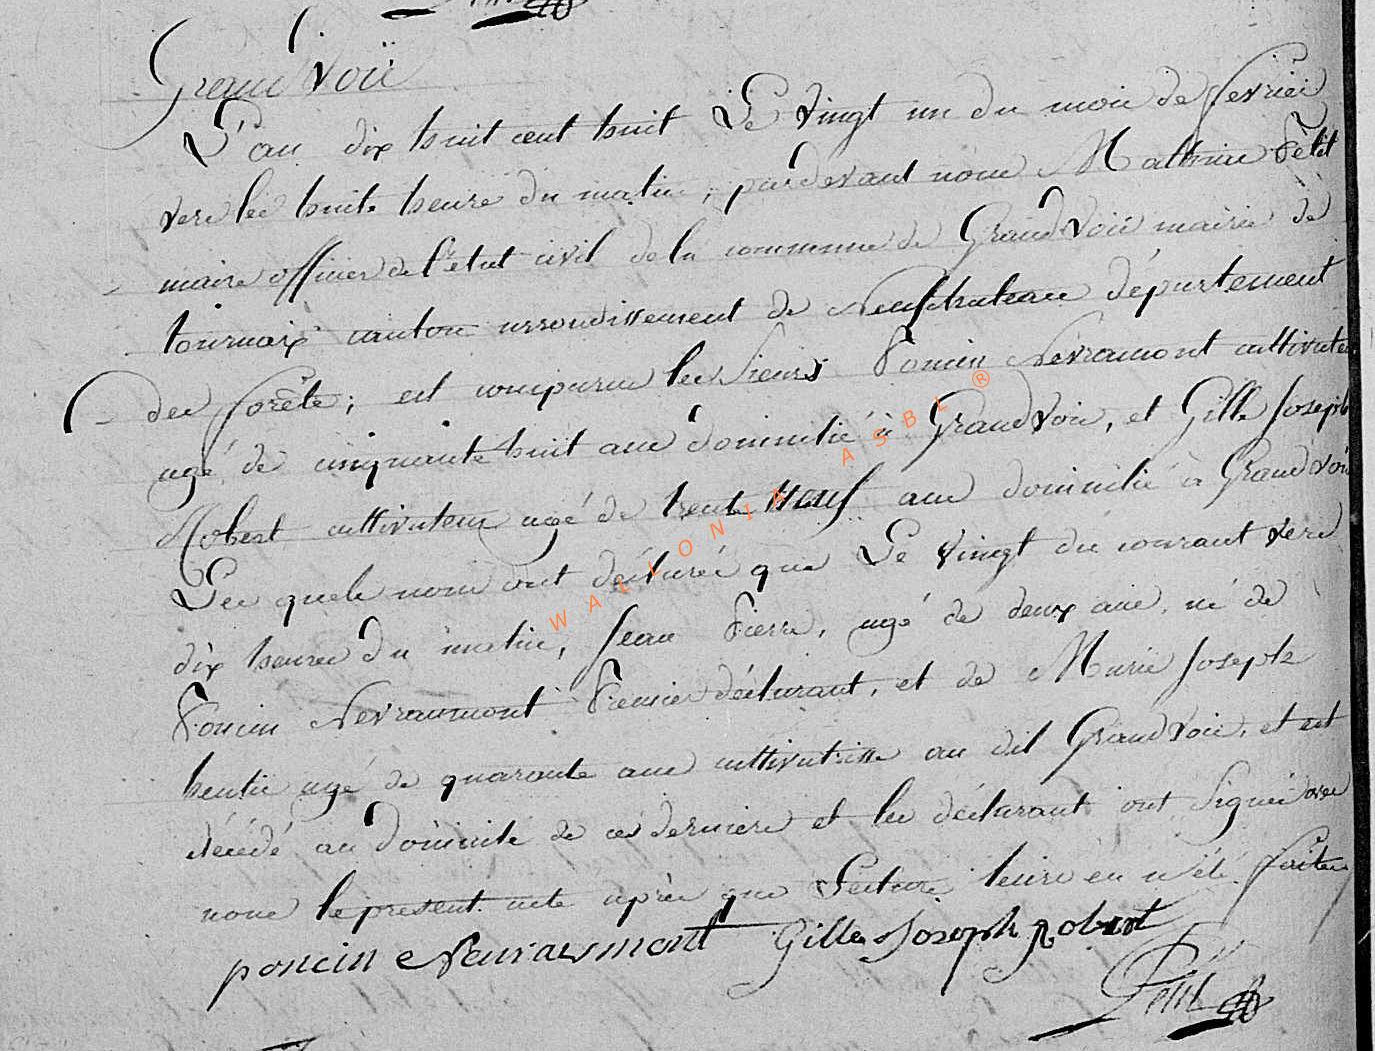 Grand Voir
L'an dix huit cent huit Le vingt un du mois de fevrier
vers les huits heures du matin, pardevant nous Mathieu Petit
maire officier de l'etat civil de la commune de Grand Voir mairie de
tournaÿ canton arrondissement de Neufchateau département
des forêts; est comparus les Sieurs Poncin Nevramont cultivateur
agé de cinquante huit ans domicilié à Grand Voir, et Gille Joseph
Robert cultivateur agé de trente Neuf ans domicilié à Grand Voir
Les quels nous ont déclarés que Le vingt du courant vers
dix heures du matin, Jean Pierre, agé de deux ans, né de
Poncin Nevraumont Premier déclarant, et de Marie Joseph
agé de quarante ans cultivatrisse au dit Grand Voir, et est
décédé au domicile de ces derniers et les déclarant ont Signés avec
nous le present acte après que Lecture leurs en a été faites
poncin Neuraumont Gilles Joseph Robert
Petit
WALLONIA ASBL ®